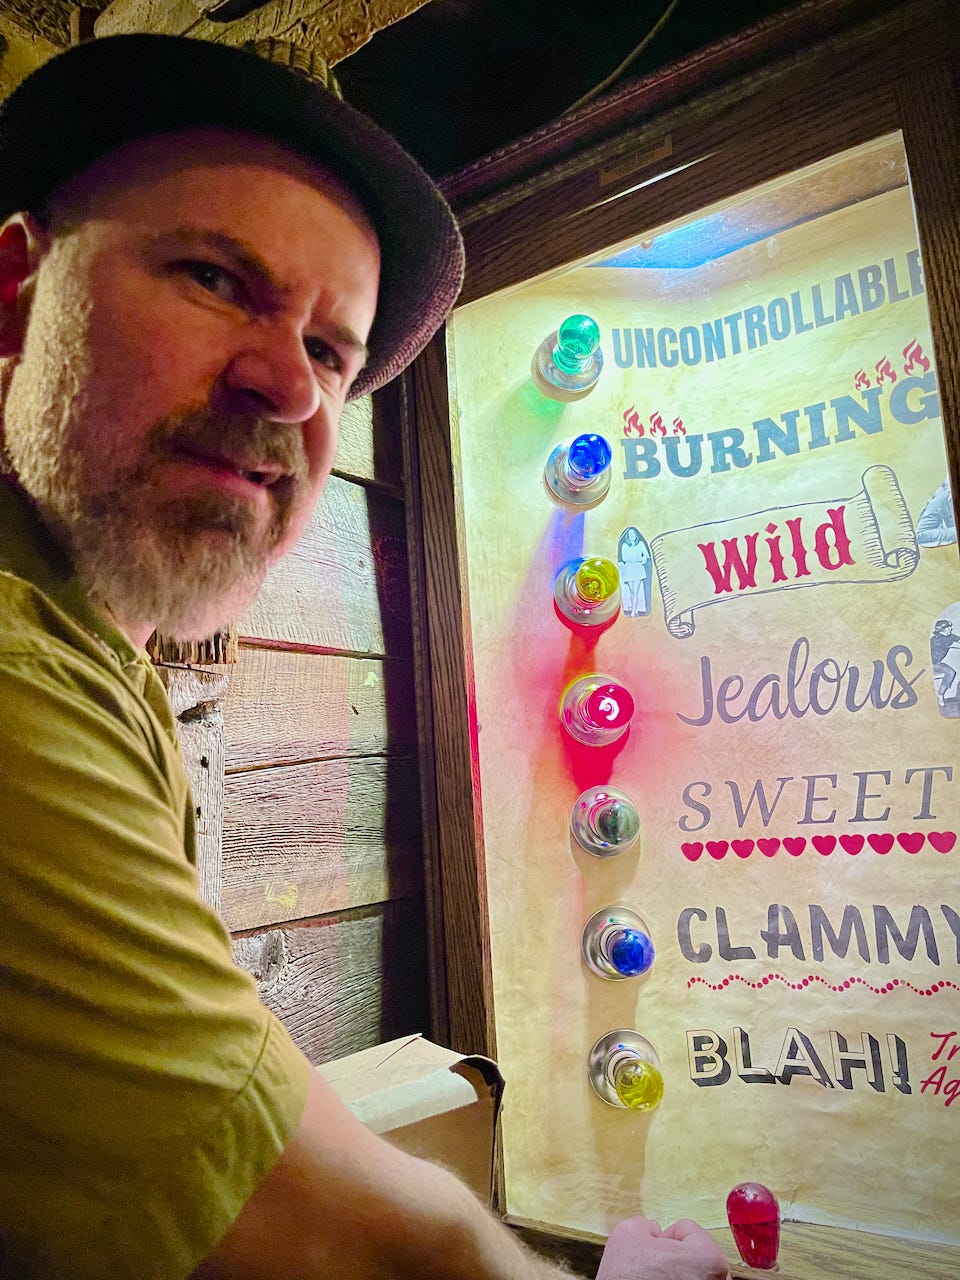 UNCONTROLLABLE
BURNING
Wild
Jealous
SWEET
CLAMMY
BLAH!